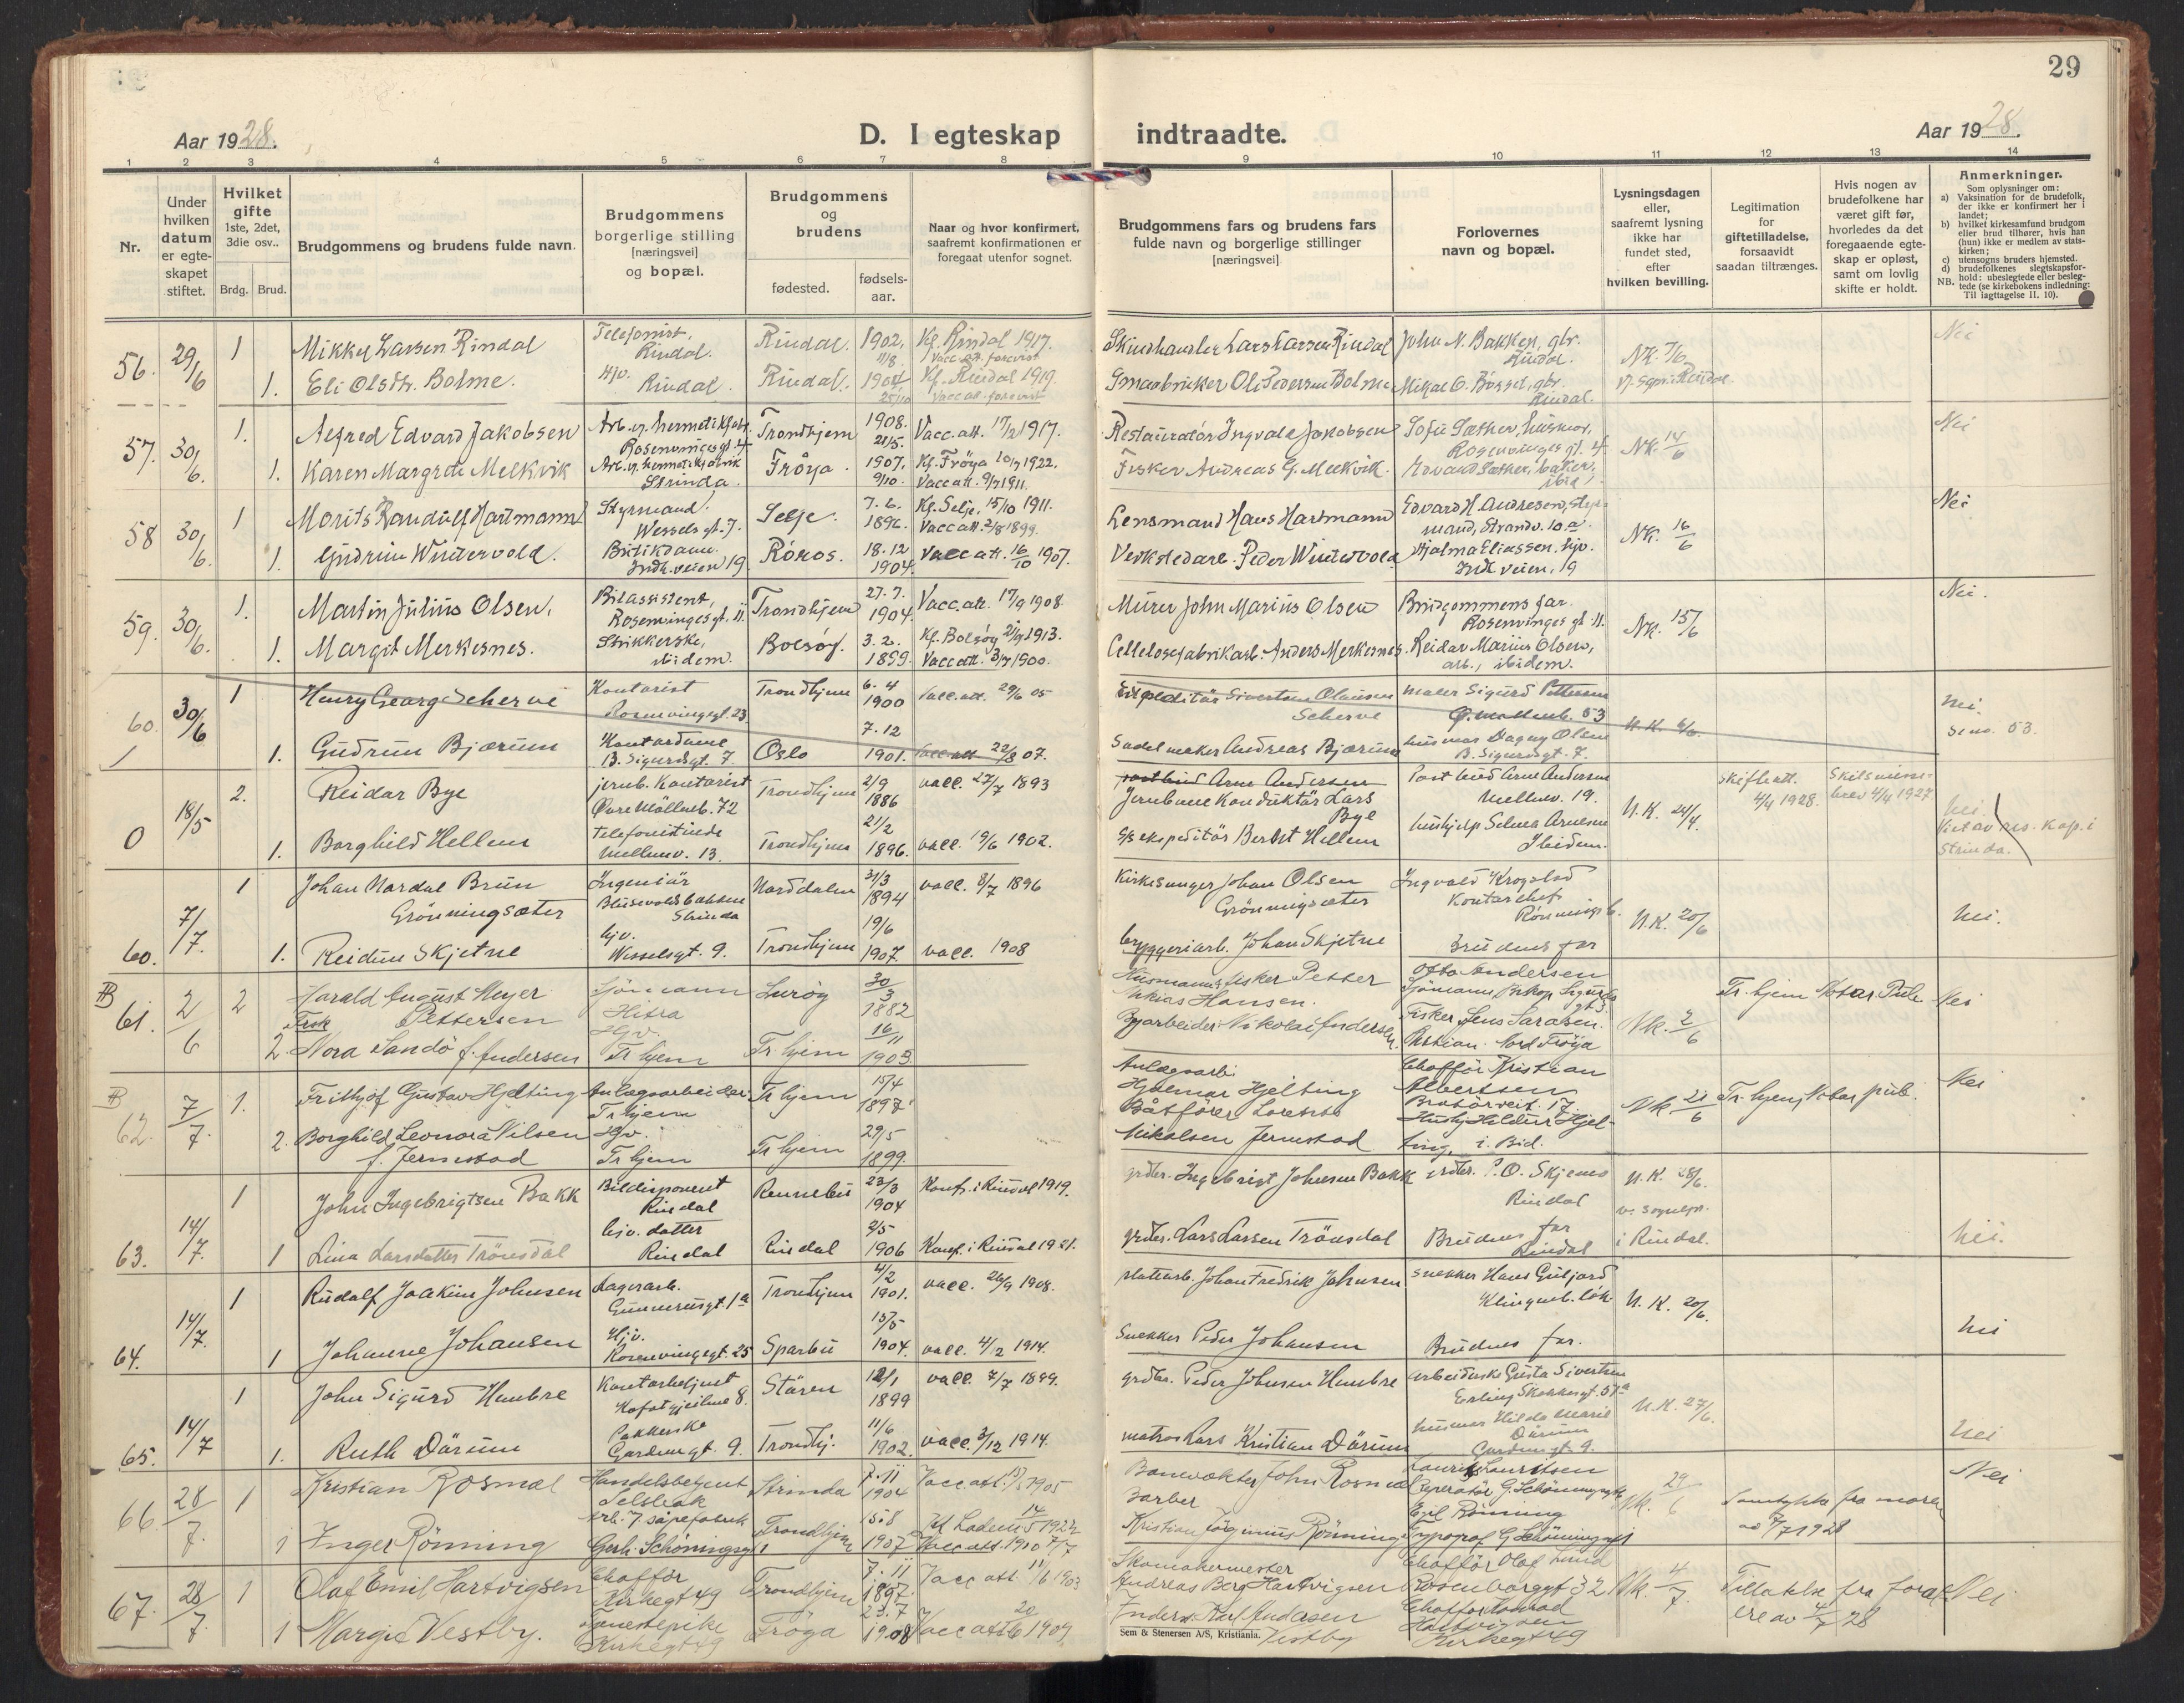 29
Aar 1928.
D. I egteskap indtraadte.
Aar 1928.
1 2 3 4 5 6 7 8 9 10 11 12 13 14
Nr.
Under hvilken datum er egte-skapet stiftet.
Hvilket gifte 1ste, 2det, 3die osv..
Brdg. Brud.
Brudgommens og brudens fulde navn.
Brudgommens borgerlige stilling [næringsvei] og bopæl.
Brudgommens og brudens
fødested.
fødsels-aar.
Naar og hvor konfirmert, saafremt konfirmationen er foregaat utenfor sognet.
Brudgommens fars og brudens fars fulde navn og borgerlige stillinger [næringsvei]
Forlovernes navn og bopæl.
Lysningsdagen eller, saafremt lysning ikke har fundet sted, efter hvilken bevilling.
Legitimation for giftetilladelse, forsaavidt saadan tiltrænges.
Hvis nogen av brudefolkene har været gift før, hvorledes da det foregaaende egte-skap er opløst, samt om lovlig skifte er holdt.
Anmerkninger.
Som oplysninger om:
a) Vaksination for de brudefolk, der ikke er konfirmert her i landet;
b) hvilket kirkesamfund brudgom eller brud tilhører, hvis han (hun) ikke er medlem av stats-kirken;
c) utensogns bruders hjemsted.
d) brudefolkenes slegtskapsfor-hold: ubeslegtede eller besleg-tede (se kirkebokens indledning: Til iagttagelse II. 10).
NB.
56. 29/6 1 Mikkel Larsen Rindal Telefonist, Rindal. Rindal. 1902. 11/8 Kf. Rindal 1917. Vacc. att. forevist Skindhandler Lars Larsen Rindal John N. Bakken, gbr. Rindal. NK. 7/6 Nei
1. Eli Olsdtr. Bolme. Hjv. Rindal. Rindal. 1904 25/10 Kf. Rindal 1919. Vacc att. forevist Smaabruker Ole Pedersen Bolme Rindal.
57. 30/6. 1. Alfred Edvard Jakobsen Rosenvinges gt. 4 Trondhjem 1908. 21/5. Vacc. att. 17/2 1917. Restauratør Ingvald Jakobsen Sofie Sæther, husmor, Rosenvinges gt. 4. NK. 14/6 Nei
1. Karen Margrete Melkvik Strinda. Frøya. 1907. 9/10. Kf. Frøya 10/7 1922. Vacc att. 9/7 1911. Fisker Andreas G. Melkvik. Edvard Sæther, baker, ibid.
58 30/6. 1 Morits Randulf Hartmann Styrmand. Wessels gt. 7. Selje. 7. 6. 1896. Kf. Selje. 15/10 1911. Vacc att. 2/8 1899. Lensmand Hans Hartmann Edvard H. Andresen, styr-mand, Strandv. 10.a. NK. 16/6 Nei
1. Gudrun Wintervold. Butikdame. Indh. veien 19 Røros. 18. 12 1904. Vacc att. 16/10 1907. Verkstedarb. Peder Wintervold Hjalma Eliassen, hjv. Indh veien. 19
59. 30/6. 1. Martin Julius Olsen. Bilassistent, Rosenvinges gt. 11. Trondhjem 27. 7. 1904. Vacc. att. 17/9 1908. Murer John Marius Olsen Brudgommens far. Rosenvinges gt. 11. NK. 15/6 Nei.
1. Margit Merkesnes. Strikkerske, ibidem. Bolsøy. 3. 2. 1899. Kf. Bolsøy 21/9 1913. Vacc att. 3/7 1900. Cellelosefabrikarb. Anders Merkesnes. Reidar Marius Olsen, arb., ibidem.
60. 30/6 1 Henry Georg Scherve Kontorist Rosenvingegt. 23 Trondhjem 6. 4 1900 Vacc. att. 29/6 05 Expeditør Sivertsen Olausen Scherve Maler Sigurd Pettersen Ø. møllenb. 53 N. K. 6/6. nei. se no. 53.
1. Gudrun Bjærum Kontordame B. Sigurdsgt. 7. Oslo 7. 12 1901. Vacc att 22/8 07. Sadelmaker Andreas Bjærum husmor Dagny Olsen B. Sigurdsgt. 7.
0 18/5 2. Reidar Bye jernb. Kontorist Øvre Møllenb. 72 Trondhjem 2/9 1886 vacc. 27/7 1893 postbud Arne Andersen Jernbane Konduktør Lars Bye Postbud Arne Andersen Mellemv. 19. N. K. 24/4. Skifteatt. 4/4 1928. Skilsmisse-brev 4/4 1927 nei. Viet av res. kap. i Strinda.
1. Borghild Hellem Telefonistinde Mellemv. 13. Trondhjem 21/2 1896. vacc. 19/6 1902. ekspeditør Berbst Hellem hushjelp Selma Arnesen Ibidem.
60. 7/7. 1 Johan Nordal Brun Grønningsæter Ingeniør Strinda Norddalen 31/3 1894 vacc. 8/7 1896 Kirkesanger Johan Olsen Grønningsæter Ingvald Krogstad Kontorchef N. K. 20/6 nei.
1. Reidun Skjetne hjv. Wesselsgt. 9. Trondhjem 19/6 1907. vacc. 1908 bryggeriarb. Johan Skjetne Brudens far
61. 2/6 2 Harald August Meyer Pettersen Sjømann Hitra Lurøy 30/3 1882 Husmann, fisker Petter Hansen. Otto Andersen Sjømann, Biskop Sigurds gt 3. NK. 2/6 Tr. hjem Notar. Pub. Nei
2 Nora Sandø f. Andersen Hjv. Tr hjem Tr. hjem 16/11 1903 Byarbeider Nikolai Andersen. Fisker Jens Saralsen. Nord Frøya
62. 7/7. 1. Frithjof Gustav Hjelting Anlegsarbeider Tr hjem Tr hjem 15/4 1897 Anlegsarb. Hjalmar Hjelting Chaffør Kristian Albertsen NK 21/6 Tr. hjem, Notar pub. Nei
2. Borghild Leonora Nilsen f. Jermstad Hjv. Tr hjem Tr hjem 29/5 1899. Båtfører Lorents Nikolsen Jermstad Hushj Hildur Hjel-ting, i. Bid.
63. 14/7. 1 John Ingebrigtsen Bakk Bildisponent Rindal Rennebu 23/3 1904 Konf. i Rindal 1919. grdbr. Ingebrigt Johnsen Bakk grdbr. P. O. Skjemo Rindal N. K. 28/6. v. sognepr. i Rindal. nei.
1 Lina Larsdatter Trönsdal hjv. datter Rindal Rindal 2/5 1906 Konf. i Rindal 1921. grdbr. Lars Larsen Trönsdal Brudens far Rindal
64. 14/7. 1 Rudolf Joakim Johnsen Lagerarb. Gunnerusgt. 1a Trondhjem 4/2 1901. vacc. 26/9 1908. Johan Fredrik Johnsen Snekker Hans Guljord N. K. 20/6. nei
1 Johanne Johansen Hjv. Rosenvingegt. 25 Sparbu 13/5 1904. vacc. 4/2 1914. Snekker Peder Johansen Brudens far.
65. 14/7 1 John Sigurd Hembre Kontorbetjent Støren 12/1 1899 vacc. 7/7 1899. grdbr. Peder Johnsen Hembre arbeiderske Gusta Sivertsen Erling Skakkesgt. 51a N. K. 27/6. nei
1. Ruth Dårum Pakkerske Gardemgt. 9. Trondhj. 11/6 1902. vacc. 3/12 1914. matros Lars Kristian Dårum husmor Hilda Marie Dårum Gardemgt. 9.
66. 28/7. 1 Kristian Rosmal Handelsbetjent Selsbak Strinda 7. 11 1904 Banevokter John Rosmal Laurits Lauritsen NK. 29/6 Samtykke fra moren Nei
1 Inger Rönning Arb. i såpefabrik Gerh. Schöningsgt 1 Trondhjem 15. 8 1907 Barber Kristian Jörginius Rönning Egil Rönning Typograf G. Schöningsgt 1
67. 28/7. 1 Olaf Emil Hartvigsen Chaffør Kirkegt 49 Trondhjem 7. 11 1897. Vacc att. 11/6 1903 Skomakermester Andreas Berg Hartvigsen Chaffør Olaf Lund Rosenborggt 32 NK. 4/7. Tillatelse fra foræld-rene av 4/7 28 Nei
1 Margit Vestby. Tjenestepike Kirkegt 49 Frøya 23. 7 1908 Vacc att 20/6 1909 Karl Andasen Vestby Chaffør Konrad Hartvigsen Kirkegt 49
Sem & Stenersen A/S, Kristiania.